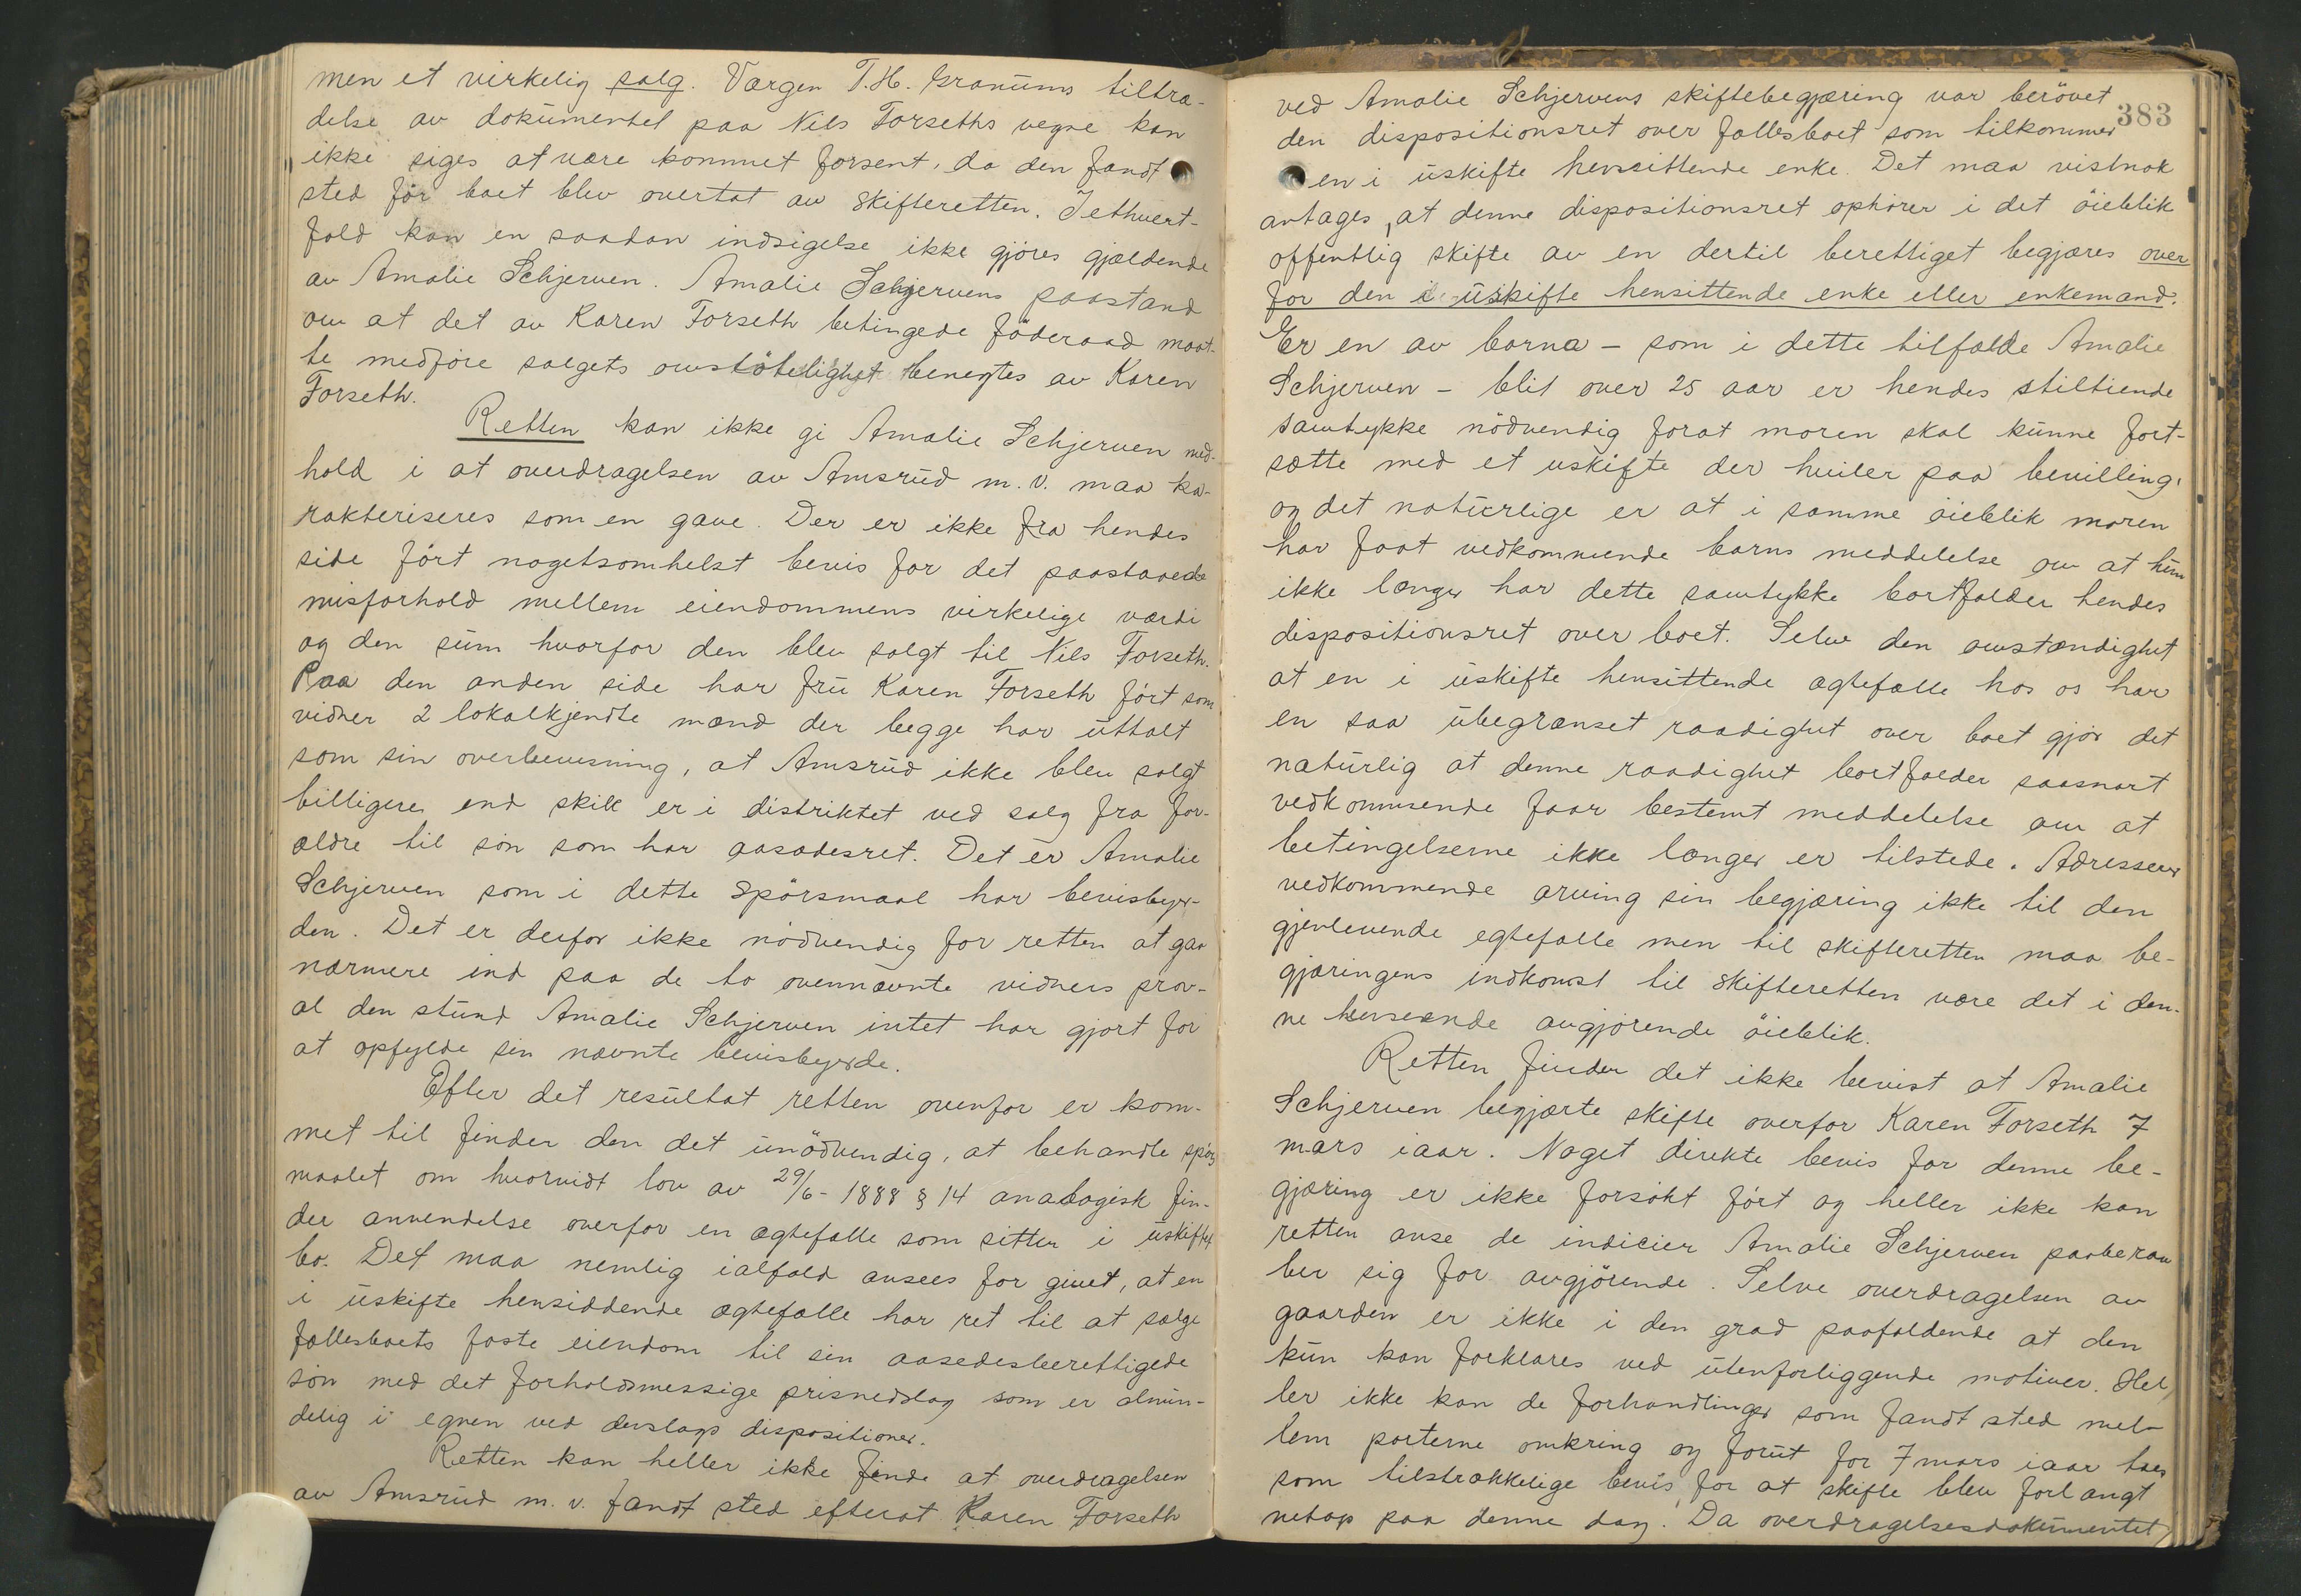 men et virkelig salg. Værgen T.H. Granums tiltræ-
delse av dokumentet paa Nils Forseths vegne kan
ikke siges at være kommet forsent, da den fandt
sted før boet blev overtat av skifteretten. I ethvert-
fald kan en saadan indsigelse ikke gjöres gjældende
av Amalie Schjerven. Amalie Schjervens paastand
om at det av Karen Forseth betingede föderaad maat-
te medføre salgets omstötelighet benegtes av Karen
Forseth.
Retten kan ikke gi Amalie Schjerven med-
hold i at overdragelsen av Amsrud m.v. maa ka-
rakteriseres som en gave. Der er ikke fra hendes
side ført nogetsomhelst bevis for det paastaaede
misforhold mellem eiendommens virkelige værdi
og den sum hvorfor den blev solgt til Nils Forseth.
Paa den anden side har fru Karen Forseth ført som
vidner 2 lokalkjendte mænd der begge har uttalt
som sin overbevisning, at Amsrud ikke blev solgt
billigere end skik er i distriktet ved salg fra for-
ældre til søn som har aasædesret. Det er Amalie
Schjerven som i dette spörsmaal har bevisbyr-
den. Det er derfor ikke nödvendig for retten at gaa
nærmere ind paa de to ovennævnte vidners prov-
al den stund Amalie Schjerven intet har gjort for
at opfylde sin nævnte bevisbyrde.
Efter det resultat retten ovenfor er kom-
met til finder den det unödvendig, at behandle spörs
maalet om hvorvidt lov av 29/6-1888 § 14 analogisk fin-
der anvendelse overfor en ægtefælle som sitter i uskiftet
bo. Det maa nemlig ialfald ansees for givet, at en
i uskifte hensiddende ægtefælle har ret til at sælge
fællesboets faste eiendom til sin aasædesberettigede
søn med det forholdsmessige prisnedslag som er almin-
delig i egnen ved denslags dispositioner.
Retten kan heller ikke finde at overdragelsen
av Amsrud m.v. fandt sted efterat Karen Forseth
383
ved Amalie Schjervens skiftebegjæring var berövet
den dispositionsret over fællesboet som tilkommer
en i uskifte hensittende enke. Det maa vistnok
antages, at denne dispositionsret ophører i det öieblik
offentlig skifte av en dertil berettiget begjæres over
for den i uskifte hensittende enke eller enkemand.
Er en av barna - som i dette tilfælde Amalie
Schjerven - blit over 25 aar er hendes stiltiende
samtykke nödvendig forat moren skal kunne fort-
sætte med et uskifte der hviler paa bevilling,
og det naturlige er at i samme öieblik moren
har faat vedkommende barns meddelelse om at hun
ikke længer har dette samtykke bortfalder hendes
dispositionsret over boet. Selve den omstændighet
at en i uskifte hensittende ægtefælle hos os har
en saa ubegrænset raadighet over boet gjør det
naturlig at denne raadighet bortfalder saasnart
vedkommende faar bestemt meddelelse om at
betingelserne ikke længer er tilstede. Adresserer
vedkommende arving sin begjæring ikke til den
gjenlevende egtefælle men til skifteretten maa be-
gjæringens indkomst til skifteretten være det i den-
ne henseende avgjørende öieblik.
Retten finder det ikke bevist at Amalie
Schjerven begjærte skifte overfor Karen Forseth 7
mars iaar. Noget direkte bevis for denne be-
gjæring er ikke forsøkt ført og heller ikke kan
retten anse de indicier Amalie Schjerven paaberaa
ber sig for avgjörende. Selve overdragelsen av
gaarden er ikke i den grad paafaldende at den
kun kan forklares ved utenforliggende motiver. Hel
ler ikke kan de forhandlinger som fandt sted mel-
lem parterne omkring og forut for 7 mars iaar taes
som tilstrækkelige bevis for at skifte blev forlangt
netop paa denne dag. Da overdragelsesdokumentet